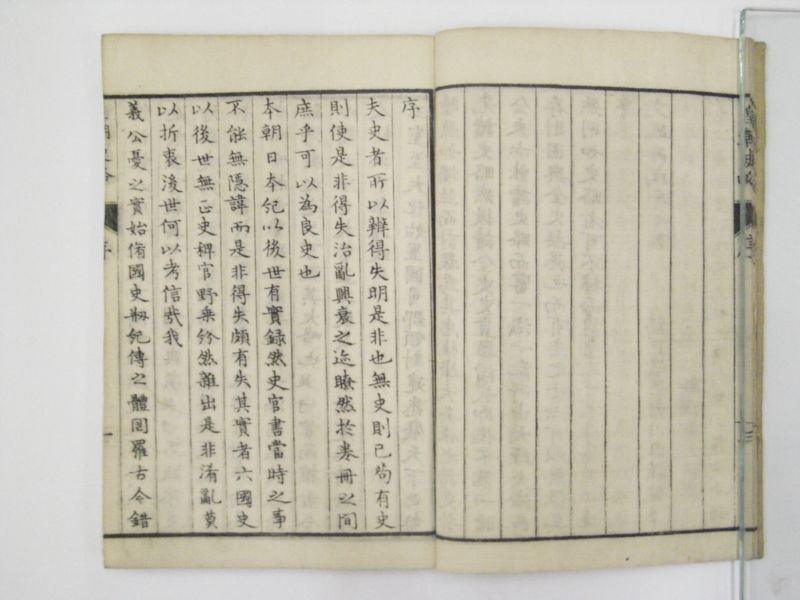 序
夫史者所以辨得失明是非也無史則已茍有史
則使是非得失治亂興衰之迹瞭然於卷冊之間
庶乎可以為良史也
本朝日本紀以後世有實錄然史官書當時之事
不能無隱諱而是非得失頗有失其實者六國史
以後世無正史稗官野乘紛然雜出是非淆亂莫
以折衷後世何以考信哉我
義公憂之實始脩國史刱紀傳之體罔羅古今錯
序
一